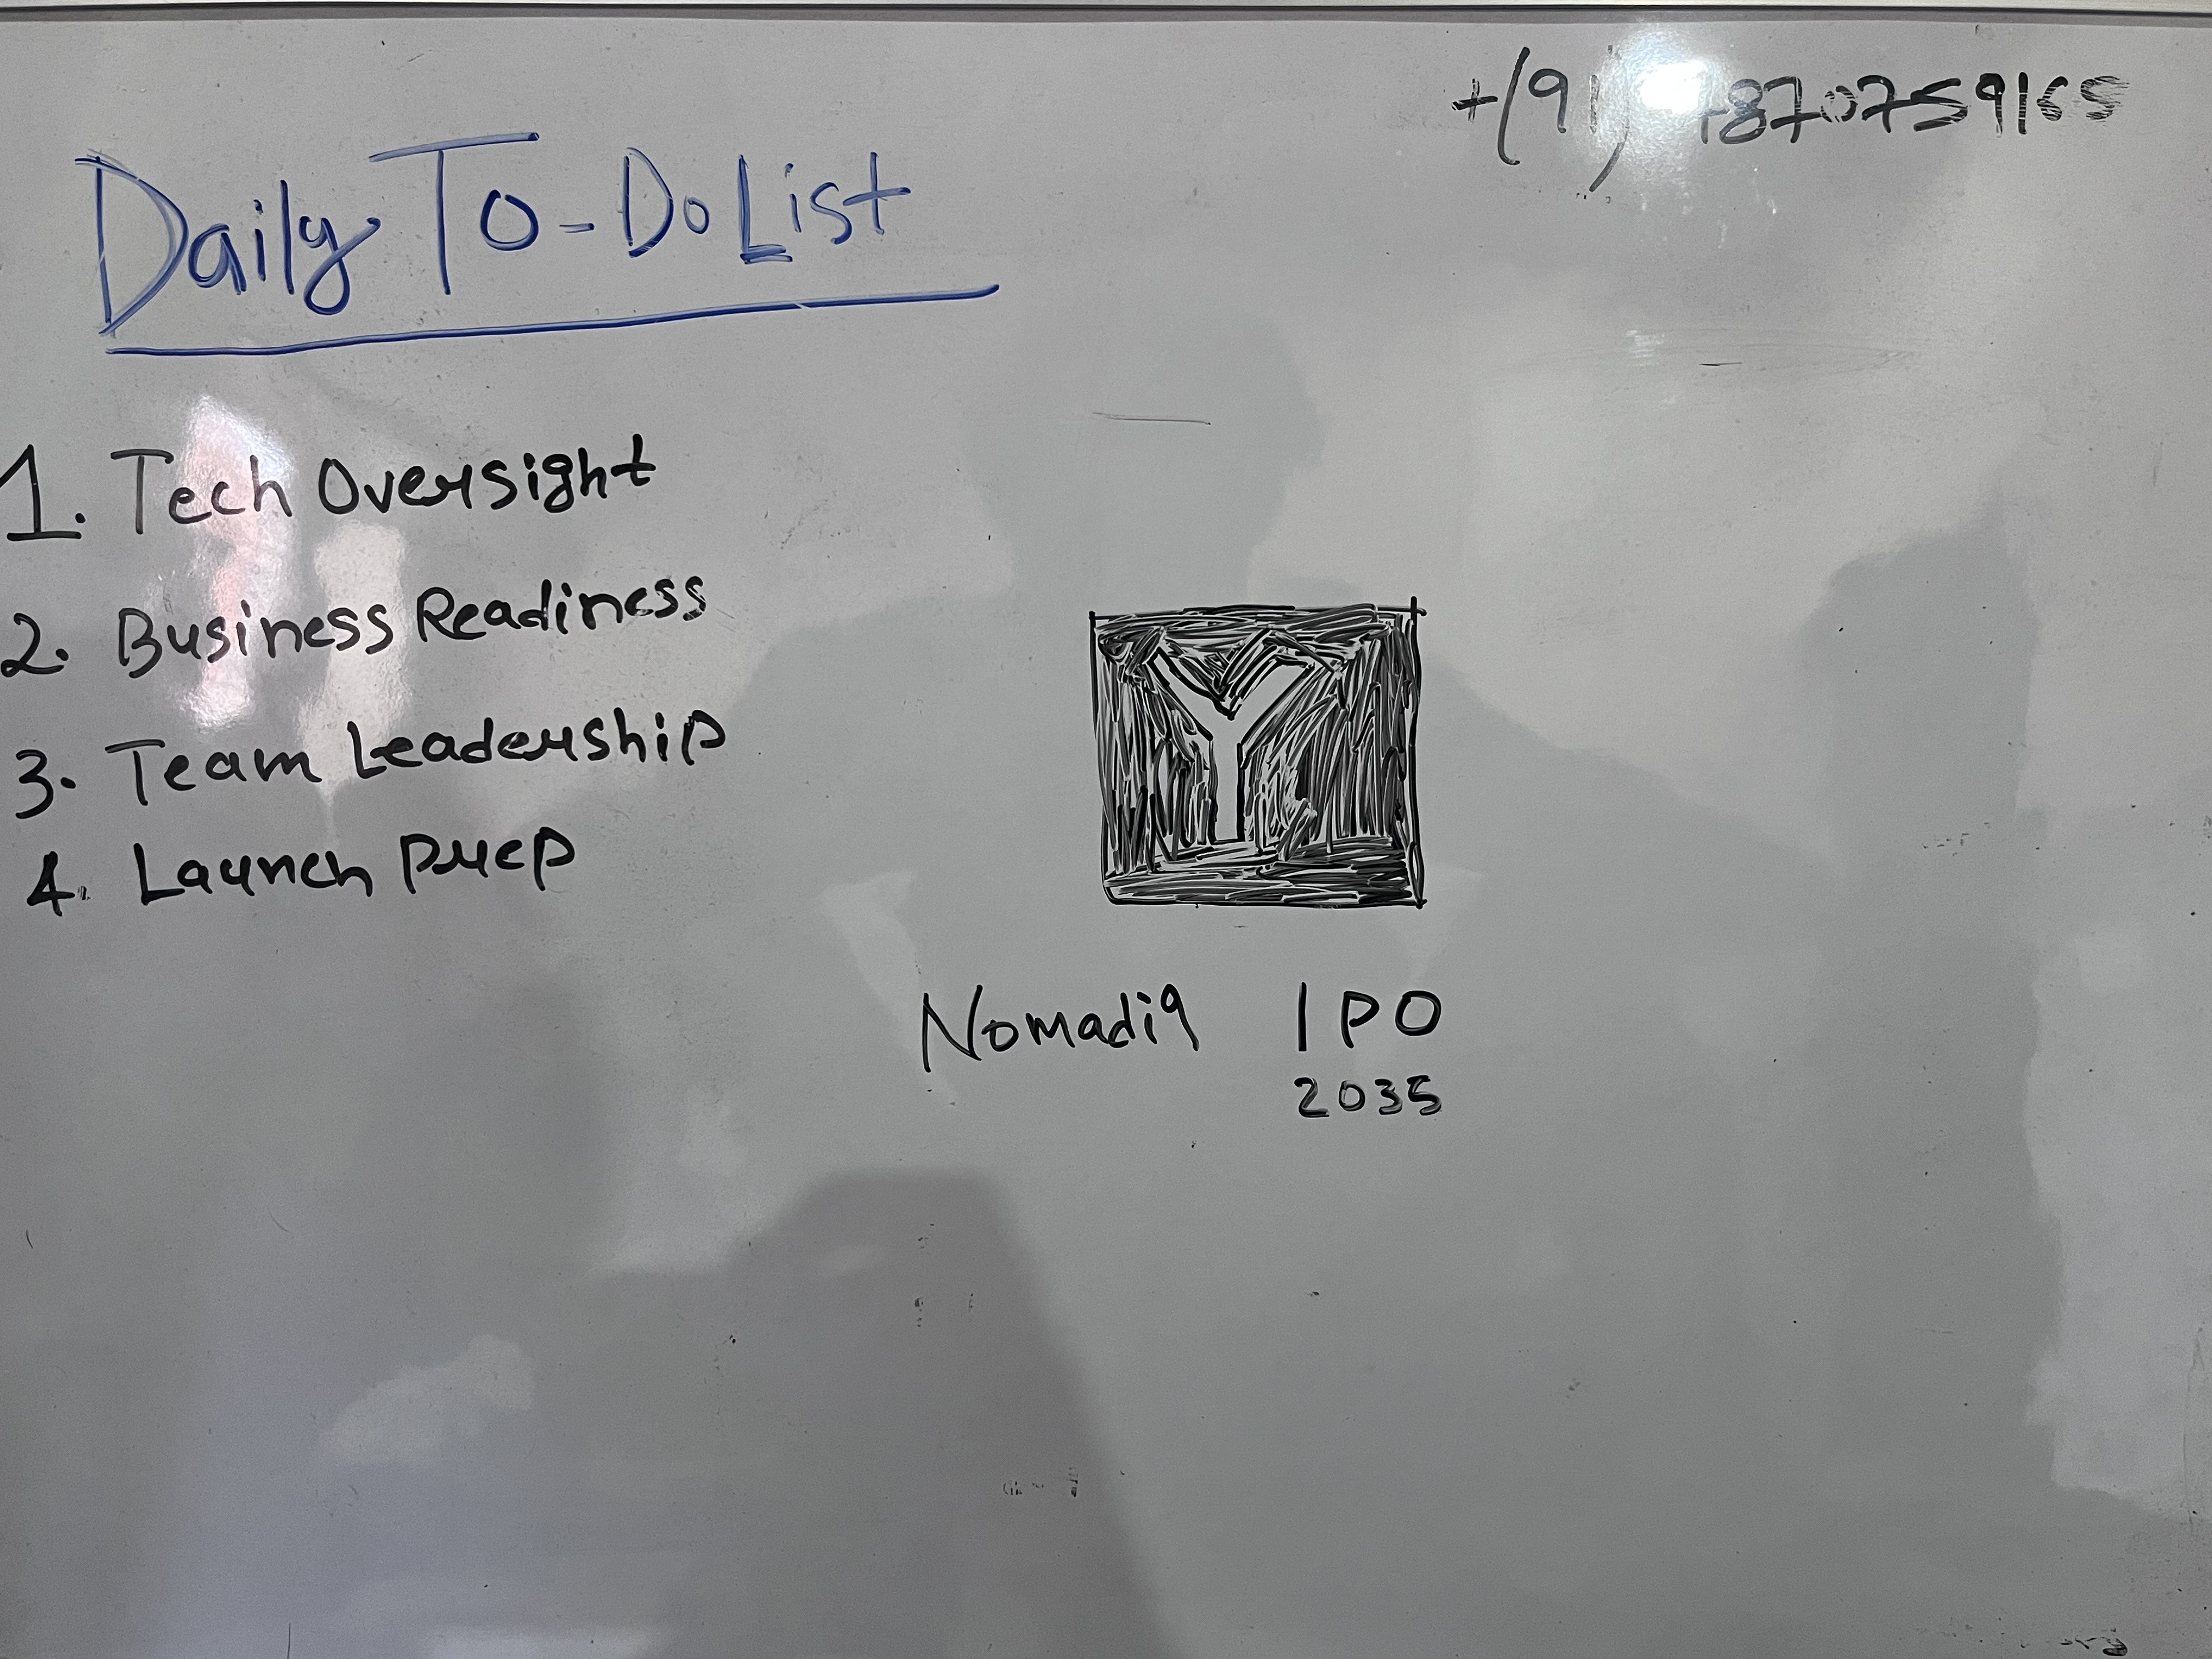 Daily To-Do List
1. Tech Oversight
2. Business Readiness
3. Team Leadership
4. Launch Prep
Y
Nomadiq IPO
2035